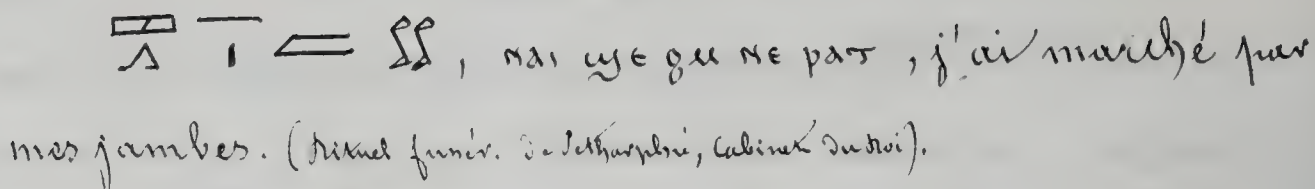 , ⲛⲁⲓ ϣⲉ ϩⲛ ⲛⲉ ⲣⲁⲧ, j'ai marché par
mes jambes. (Rituel funér. de Petharphré, Cabinet du Roi).